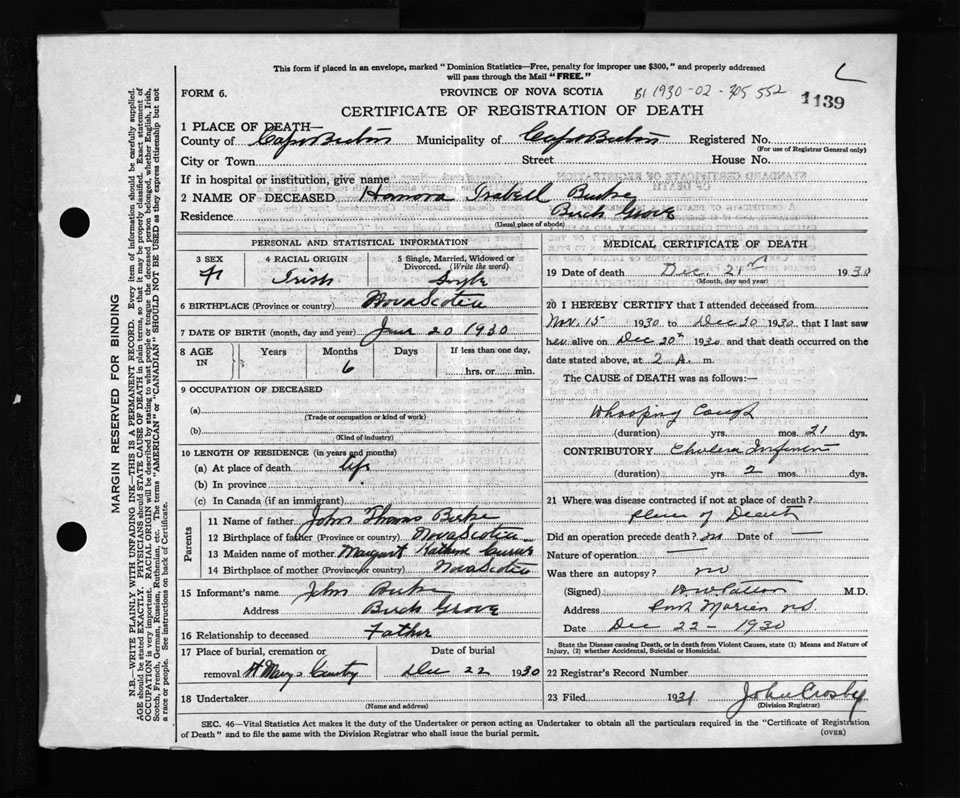 This form if placed in an envelope, marked "Dominion Statistics—Free, penalty for improper use $300," and properly addressed
will pass through the Mail "FREE."
FORM 6. PROVINCE OF NOVA SCOTIA B1 1930-02- 552 1139
CERTIFICATE OF REGISTRATION OF DEATH
1 PLACE OF DEATH—
County of Cape Breton Municipality of Cape Breton Registered No.
(For use of Registrar General only)
City or Town Street House No.
If in hospital or institution, give name
2 NAME OF DECEASED Honora Isabell Burke
Residence Birch Grove
(Usual place of abode)
PERSONAL AND STATISTICAL INFORMATION
3 SEX 4 RACIAL ORIGIN 5 Single, Married, Widowed or
Divorced. (Write the word)
F Irish Single
6 BIRTHPLACE (Province or country) Nova Scotia
7 DATE OF BIRTH (month, day and year) 20 1930
8 AGE IN Years Months Days If less than one day,
6 hrs. or min.
9 OCCUPATION OF DECEASED
(a)
(Trade or occupation or kind of work)
(b)
(Kind of industry)
10 LENGTH OF RESIDENCE (in years and months)
(a) At place of death life
(b) In province
(c) In Canada (if an immigrant)
Parents
11 Name of father John Thomas Burke
12 Birthplace of father (Province or country) Nova Scotia
13 Maiden name of mother Margaret
14 Birthplace of mother (Province or country) Nova Scotia
15 Informant's name John Burke
Address Birch Grove
16 Relationship to deceased Father
17 Place of burial, cremation or Date of burial
removal St Marys Dec 22 1930
18 Undertaker
(Name and address)
MEDICAL CERTIFICATE OF DEATH
19 Date of death Dec. 21st 1930
(Month, day and year)
20 I HEREBY CERTIFY that I attended deceased from
Nov. 15 1930 to Dec 20 1930 that I last saw
her alive on Dec 20th 1930 and that death occurred on the
date stated above, at 2 A. m.
The CAUSE of DEATH was as follows:—
Whooping Cough
(duration) yrs. mos. 21 dys.
CONTRIBUTORY Cholera Infantum
(duration) yrs. 2 mos. dys.
21 Where was disease contracted if not at place of death?
place of Death
Did an operation precede death? no Date of —
Nature of operation —
Was there an autopsy? no
(Signed) M.D.
Address Port Morien NS.
Date Dec 22 – 1930
State the Disease causing Death, or in death from Violent Causes, state (1) Means and Nature of
Injury, (2) whether Accidental, Suicidal or Homicidal.
22 Registrar's Record Number
23 Filed 1931 John Crosby
(Division Registrar)
SEC. 46—Vital Statistics Act makes it the duty of the Undertaker or person acting as Undertaker to obtain all the particulars required in the "Certificate of Registration
of Death" and to file the same with the Division Registrar who shall issue the burial permit. (OVER)
MARGIN RESERVED FOR BINDING
N.B.—WRITE PLAINLY WITH UNFADING INK—THIS IS A PERMANENT RECORD. Every item of information should be carefully supplied.
AGE should be stated EXACTLY. PHYSICIANS should STATE CAUSE OF DEATH in plain terms, so that it may be properly classified. Exact statement of
OCCUPATION is very important. RACIAL ORIGIN will be described by stating to what people or tongue the deceased person belonged, whether English, Irish,
Scotch, French, German, Russian, Ruthenian, etc. The terms "AMERICAN" or "CANADIAN" SHOULD NOT BE USED as they express citizenship but not
a race or people. See instructions on back of Certificate.